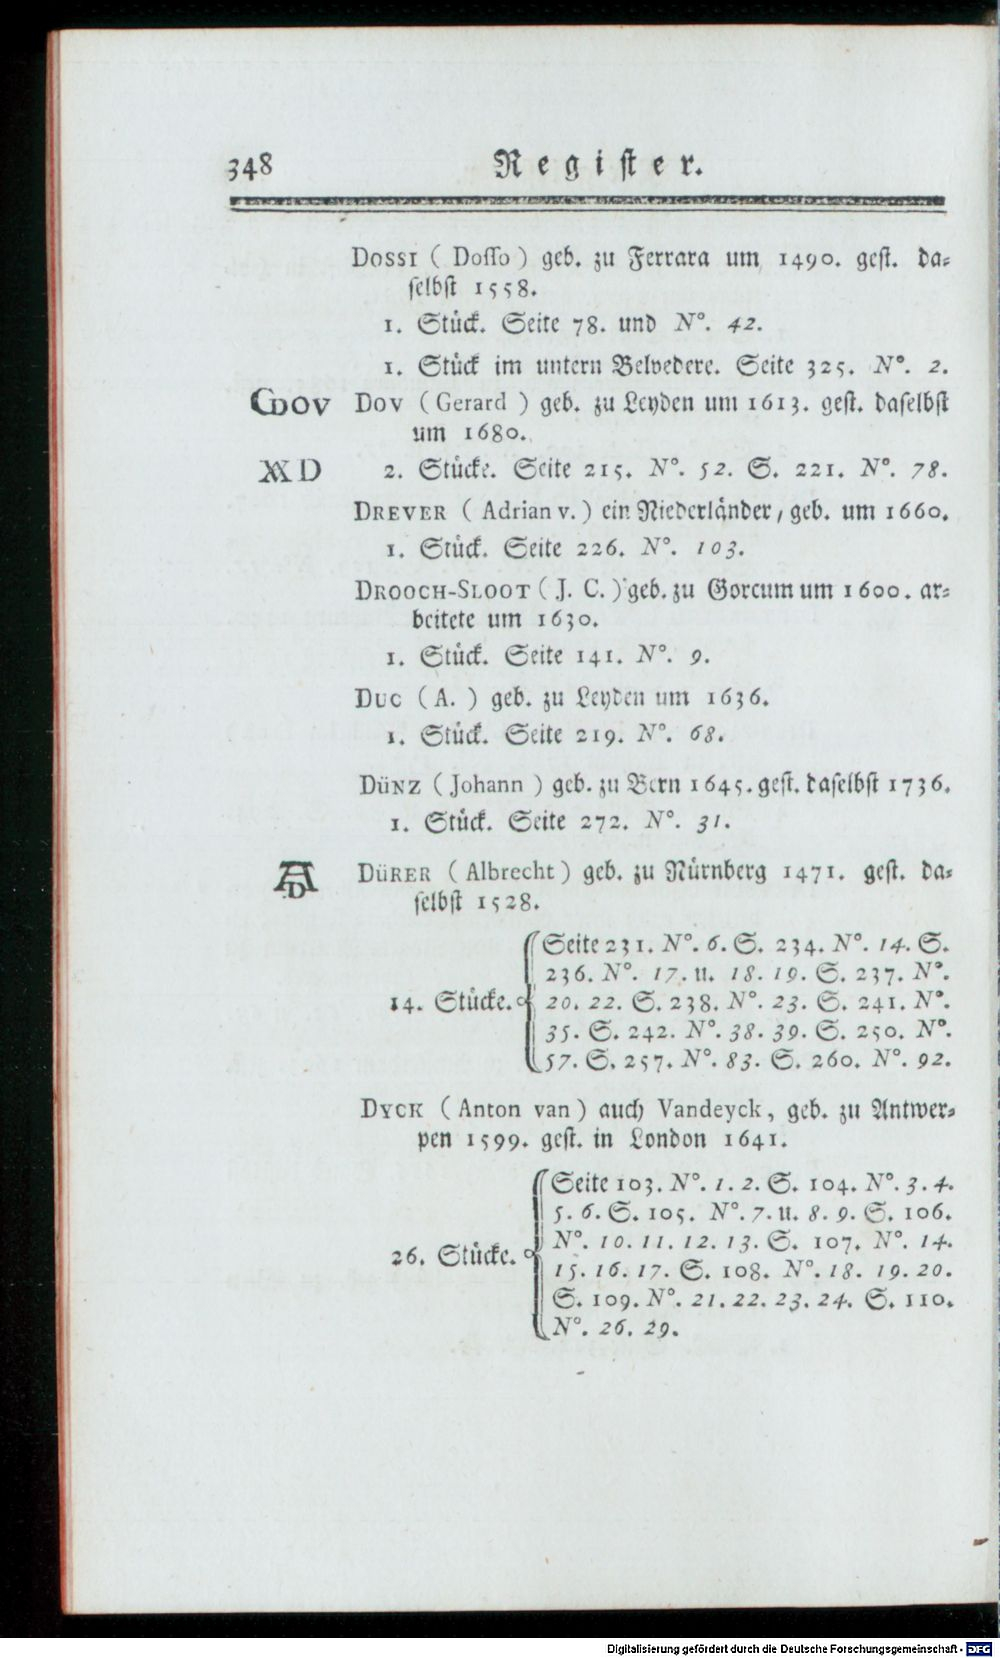 348 Regiſter.
Dossi ( Doſſo ) geb. zu Ferrara um 1490. geſt. da⸗
ſelbſt 1558.
1. Stück. Seite 78. und N°. 42.
1. Stück im untern Belvedere. Seite 325. N°. 2.
GDOV Dov ( Gerard ) geb. zu Leyden um 1613. geſt. daſelbſt
um 1680.
2. Stücke. Seite 215. N°. 52. S. 221. N°. 78.
Drever ( Adrian v. ) ein Niederländer, geb. um 1660.
1. Stück. Seite 226. N°. 103.
Drooch-Sloot ( J. C. ) geb. zu Gorcum um 1600. ar⸗
beitete um 1630.
1. Stück. Seite 141. N°. 9.
Duc ( A. ) geb. zu Leyden um 1636.
1. Stück. Seite 219. N°. 68.
Dünz ( Johann ) geb. zu Bern 1645. geſt. daſelbſt 1736.
1. Stück. Seite 272. N°. 31.
AD Dürer ( Albrecht ) geb. zu Nürnberg 1471. geſt. da⸗
ſelbſt 1528.
14. Stücke.
Seite 231. N°. 6. S. 234. N°. 14. S.
236. N°. 17. u. 18. 19. S. 237. N°.
20. 22. S. 238. N°. 23. S. 241. N°.
35. S. 242. N°. 38. 39. S. 250. N°.
57. S. 257. N°. 83. S. 260. N°. 92.
Dyck ( Anton van ) auch Vandeyck, geb. zu Antwer⸗
pen 1599. geſt. in London 1641.
26. Stücke.
Seite 103. N°. 1. 2. S. 104. N°. 3. 4.
5. 6. S. 105. N°. 7. u. 8. 9. S. 106.
N°. 10. 11. 12. 13. S. 107. N°. 14.
15. 16. 17. S. 108. N°. 18. 19. 20.
S. 109. N°. 21. 22. 23. 24. S. 110.
N°. 26. 29.
Digitalisierung gefördert durch die Deutsche Forschungsgemeinschaft - DFG